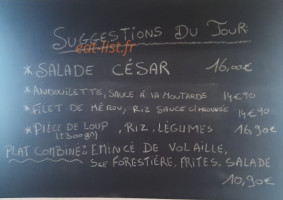 SUGGESTIONS DU JOUR
eat-list.fr
* SALADE CÉSAR 16,00€
* ANDOUILLETTE, SAUCE A LA MOUTARDE 14€90
* FILET DE MÉROU, RIZ SAUCE 14€90
* PIÈCE DE LOUP, RIZ, LEGUMES 16,90€
PLAT COMBINÉ: EMINCÉ DE VOLAILLE,
SCE FORESTIÈRE, FRITES, SALADE
10,90€